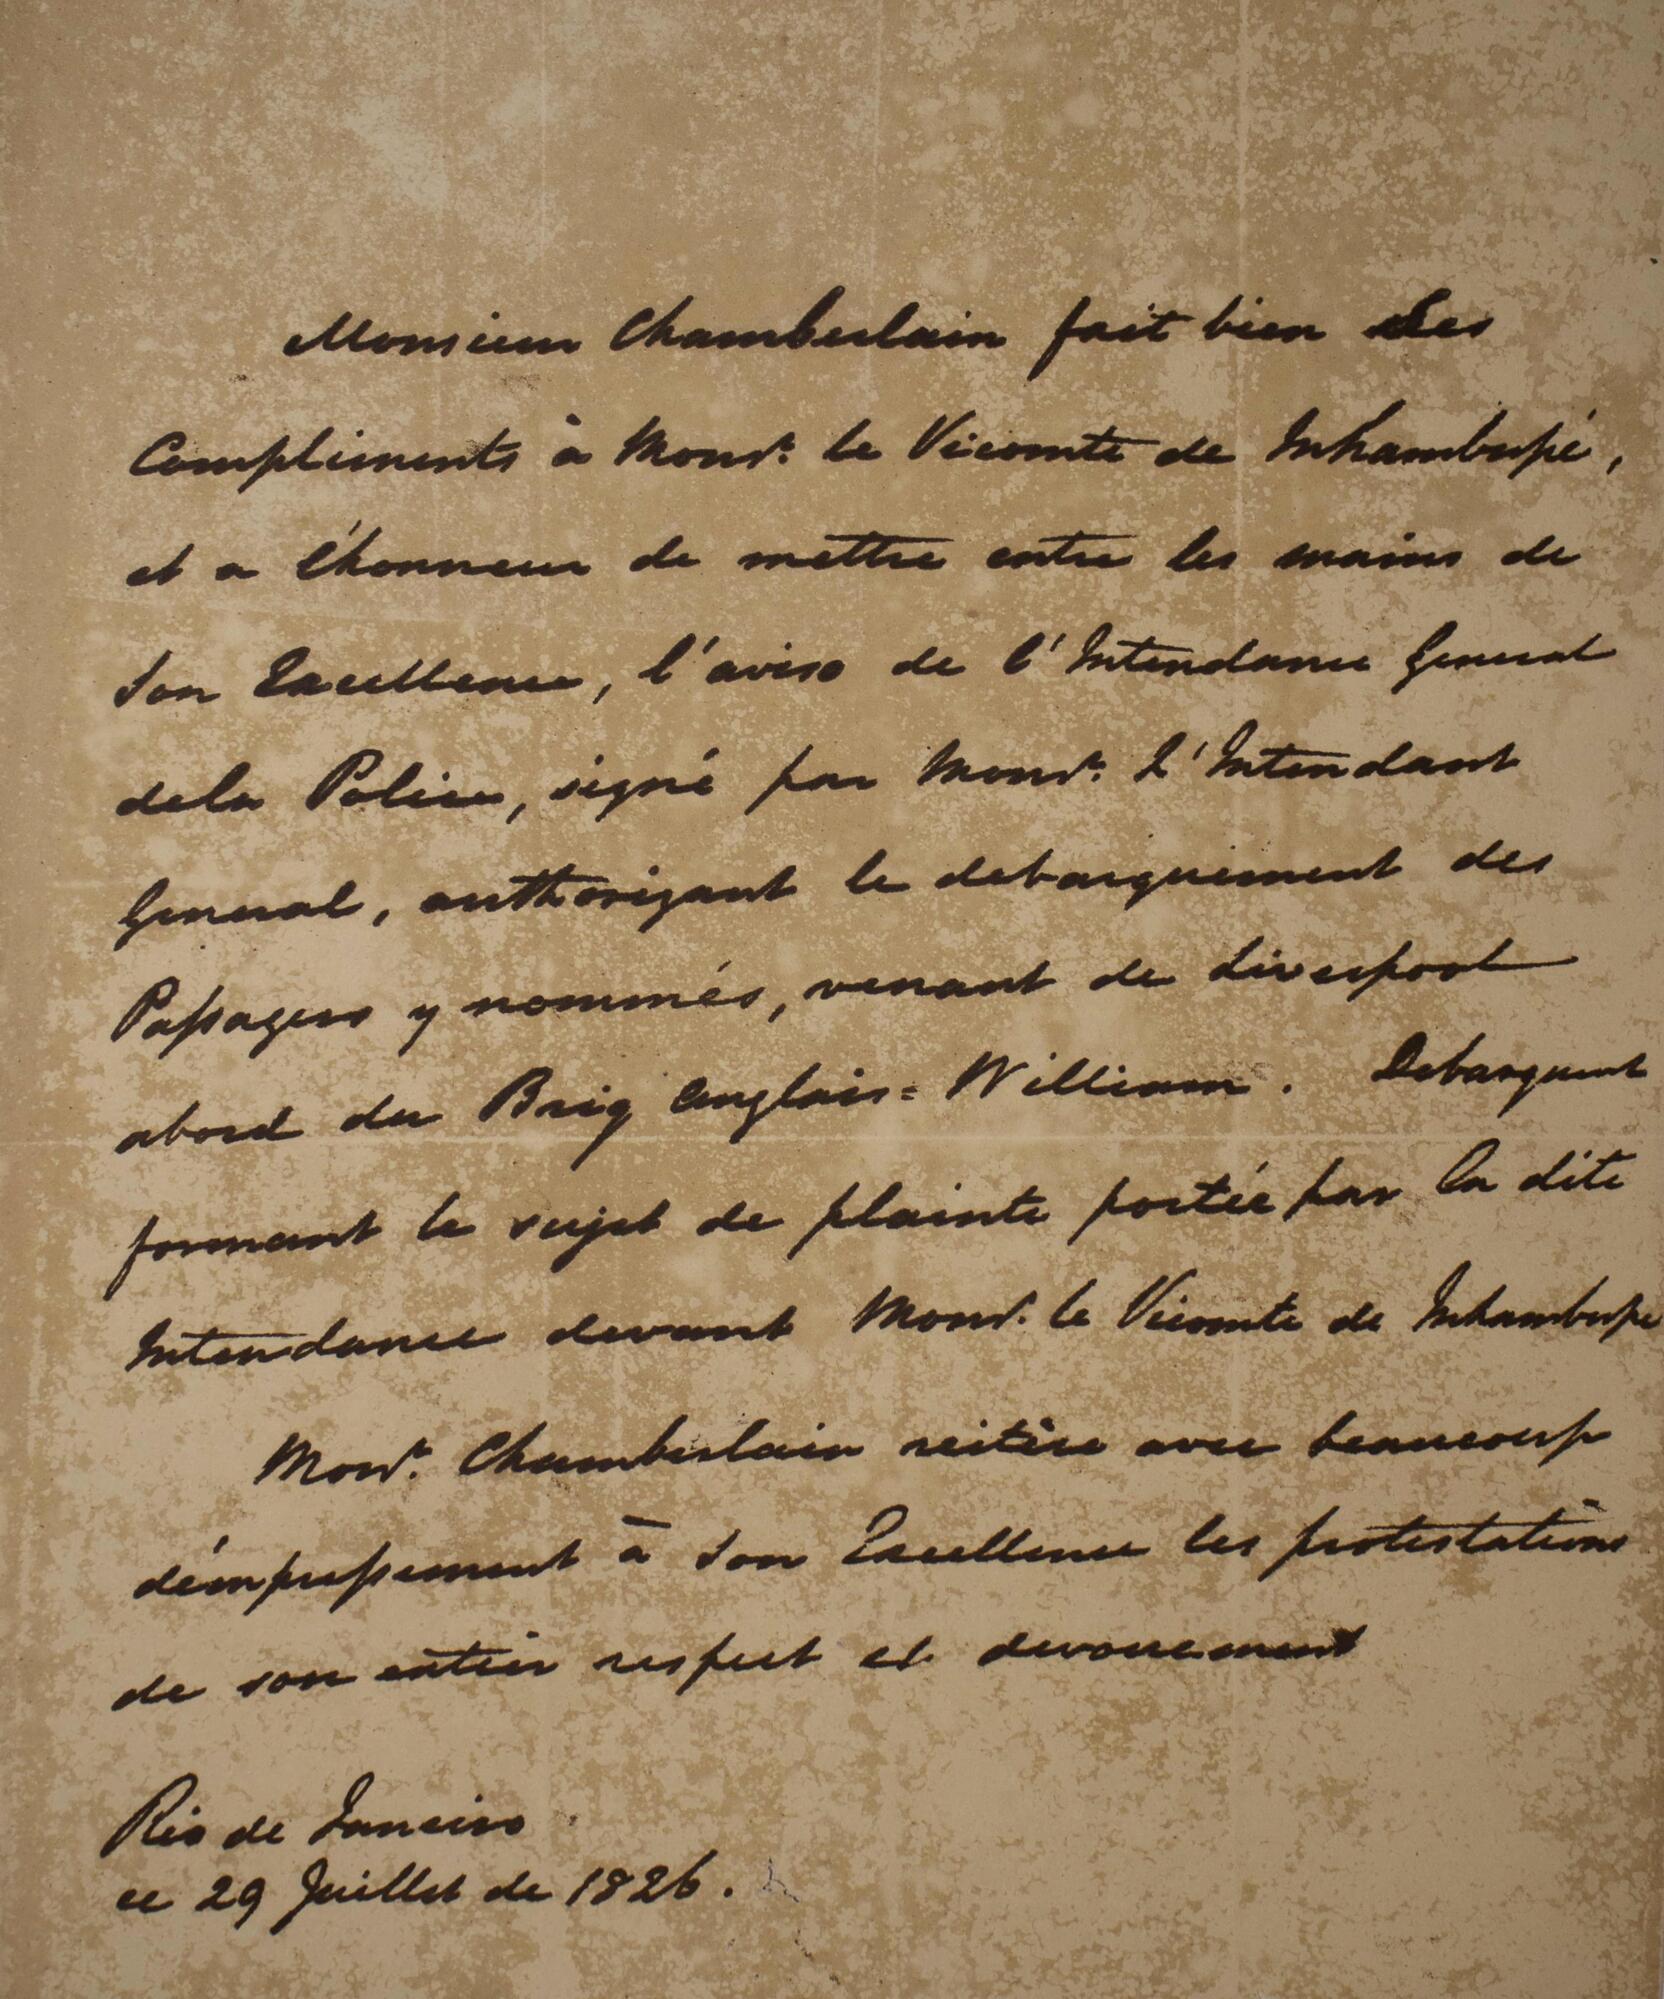 Monsieur Chamberlain fait bien Ses
Compliments à Monsr. le Vicomte de Inhambupé,
et a l'honneur de mettre entre les mains de
Son Excellence, l'aviso de l'Intendance General
dela Police, signé par Monsr. L'Intendant
General, authorizant le debarquement des
Passagers y nommés, venant de Liverpool
abord du Brig Anglais = William. Debarquent
formant le sujet de plainte portée par la dite
Intendance devant Monsr. le Vicomte de Inhambupe
Monsr. Chamberlain reitère avec beaucoup
d'émpressement à Son Excellence les protestations
de son entier respect et devouement
Rio de Janeiro
ce 29 Juillet de 1826.